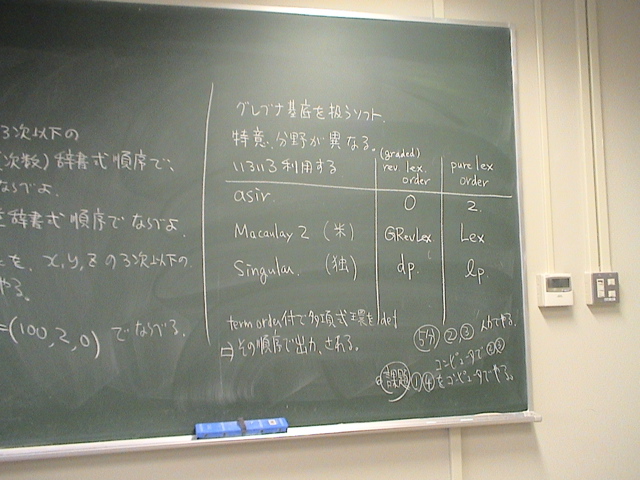 3次以下の
(次数)辞書式順序で、
ならべよ.
辞書式順序でならべよ
を、x,y,zの3次以下の
やる。
=(100,2,0) でならべる.
グレブナ基底を扱うソフト.
特意、分野が異なる。
いろいろ利用する
(graded) rev. lex. order
pure lex order
asir. 0 2.
Macaulay 2 (米) GRevLex Lex
Singular. (独) dp. lp.
term order付で多項式環をdef
その順序で出力される。
5分 ②,③ 人力でやる.
コンピュータで②③
課題 ①④をコンピュータでやる。